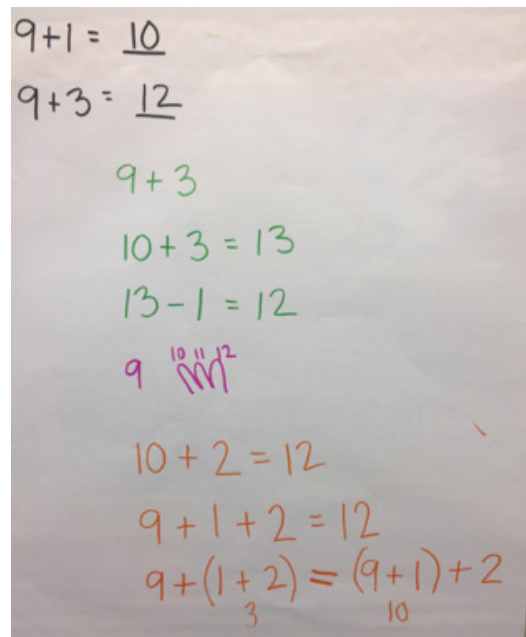 9+1 = 10
9+3 = 12
9+3
10+3 = 13
13-1 = 12
10 11 12
9
10+2 = 12
9+1+2 = 12
9+(1+2) = (9+1)+2
3 10